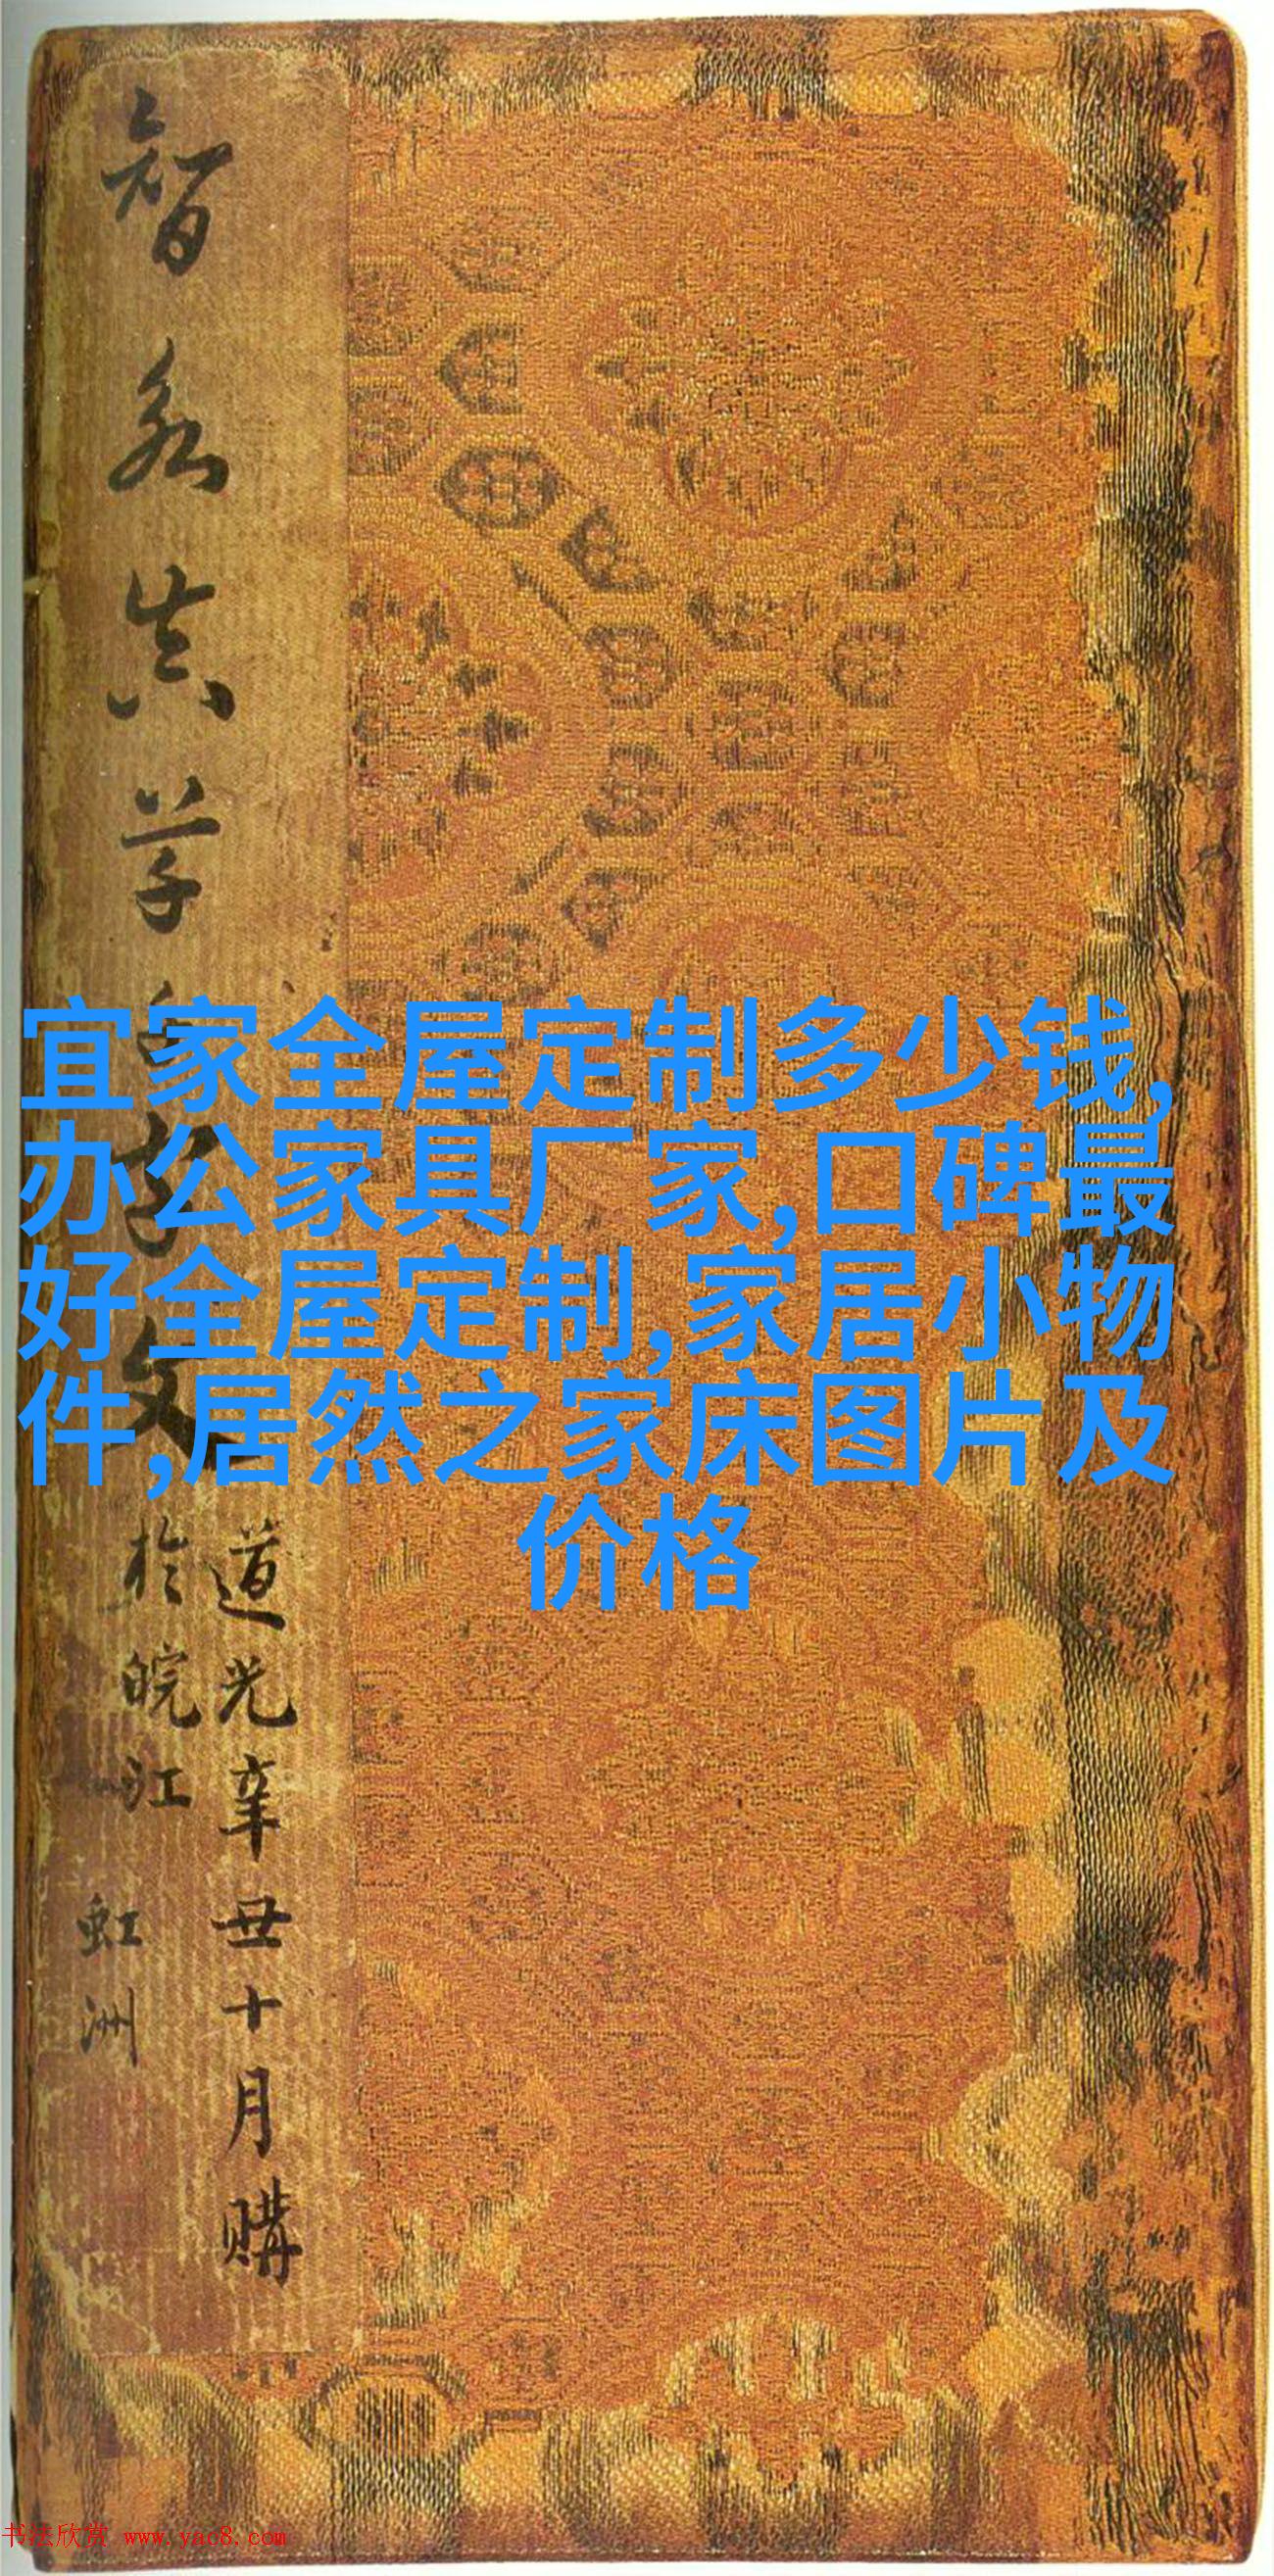 智永真草千字文
道光辛丑十月購
於皖江
虹洲
宜家全屋定制多少钱,
办公家具厂家,口碑最
好全屋定制,家居小物
件,居然之家床图片及
价格
书法欣赏 www.yac8.com